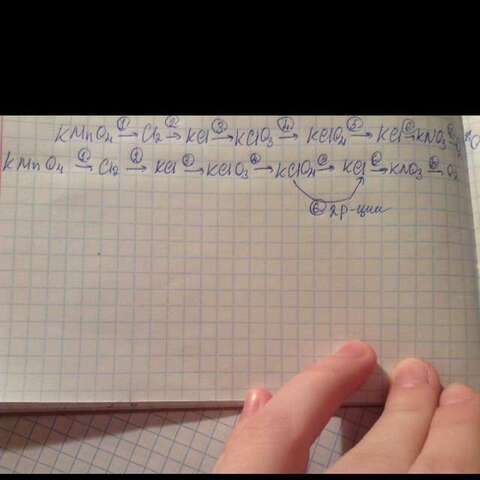 KMnO4 ① → Cl2 ② → KCl ③ → KClO3 ④ → KClO4 ⑤ → KCl ⑥ → KNO3
KMnO4 ① → Cl2 ② → KCl → KClO3 → KClO4 → KCl → KNO3 → O2
⑥ 2 р-ции